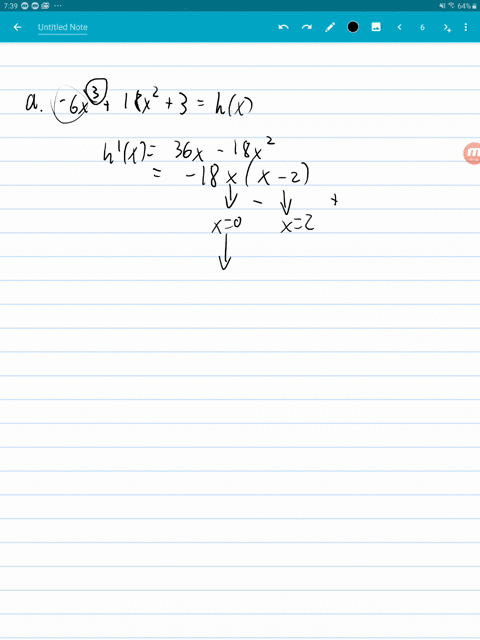 7:39 64%
Untitled Note 6
a. -6x³ + 18x² + 3 = h(x)
h'(x) = 36x - 18x²
= -18x(x-2)
- +
x=0 x=2